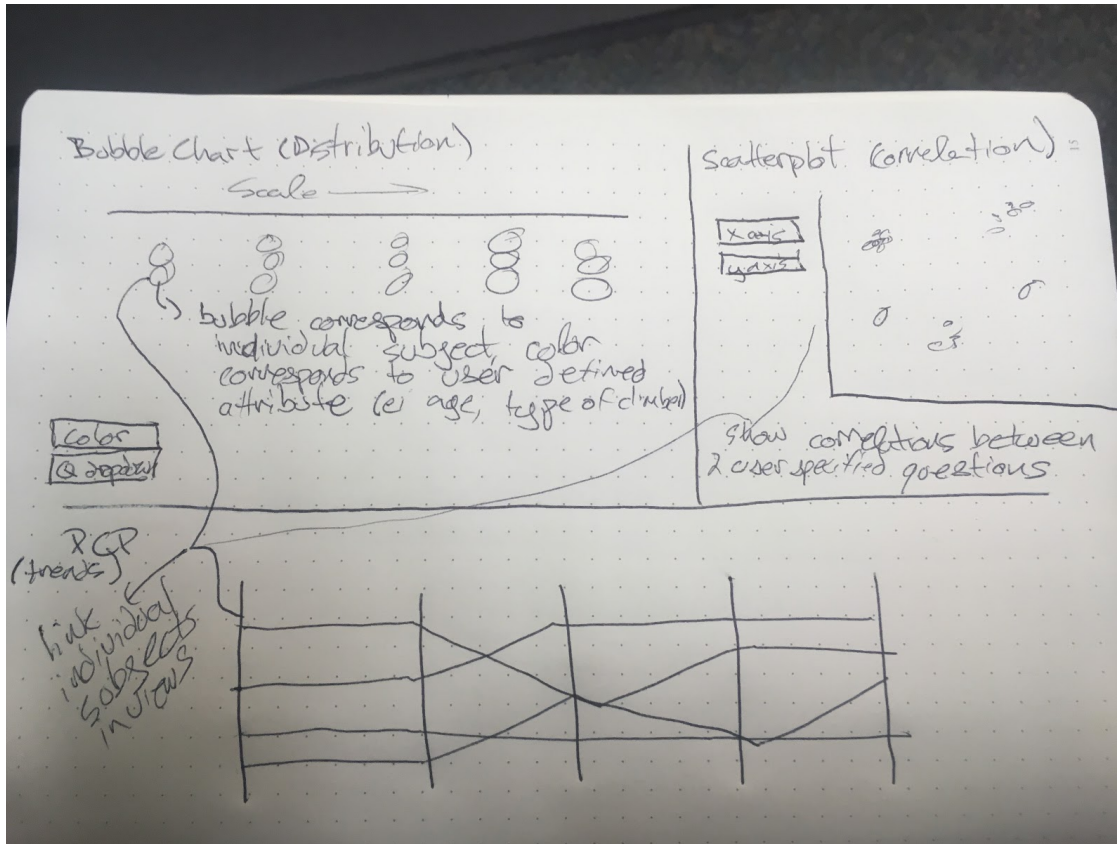 Bubble Chart (Distribution)
Scale
bubble corresponds to
individual subject, color
corresponds to user defined
attribute (ei age, type of climber)
Color
Q dropdown
Scatterplot (correlation)
X axis
y axis
show correlations between
2 user specified questions
PCP
(trends)
link
individual
subjects
in views